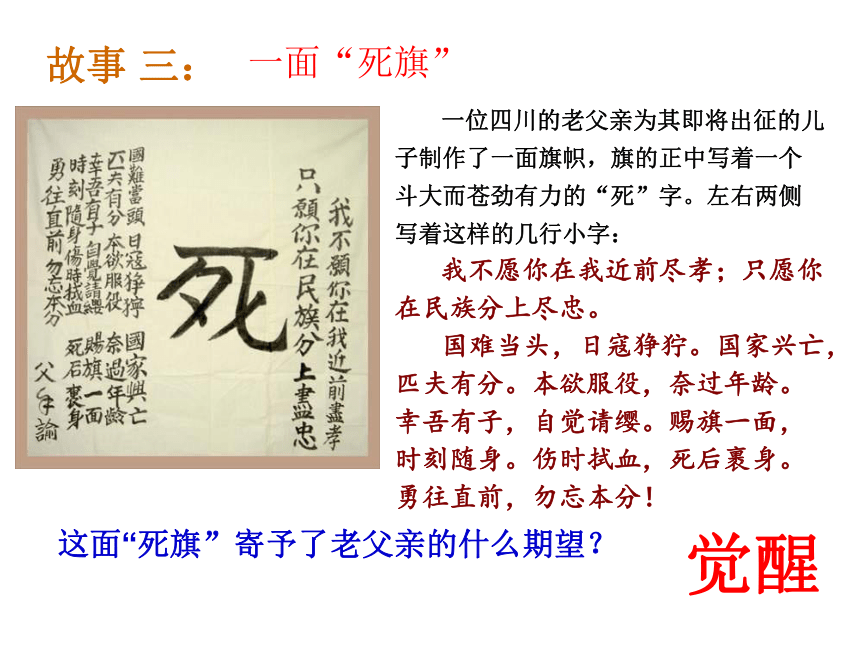 故事 三：
一面“死旗”
我不願你在我近前盡孝
只願你在民族分上盡忠
死
國難當頭 日寇猙獰 國家興亡
匹夫有分 本欲服役 奈過年齡
幸吾有子 自覺請纓 賜旗一面
時刻隨身 傷時拭血 死后裹身
勇往直前 勿忘本分
父手諭
一位四川的老父亲为其即将出征的儿
子制作了一面旗帜，旗的正中写着一个
斗大而苍劲有力的“死”字。左右两侧
写着这样的几行小字：
我不愿你在我近前尽孝；只愿你
在民族分上尽忠。
国难当头，日寇狰狞。国家兴亡，
匹夫有分。本欲服役，奈过年龄。
幸吾有子，自觉请缨。赐旗一面，
时刻随身。伤时拭血，死后裹身。
勇往直前，勿忘本分！
这面“死旗”寄予了老父亲的什么期望？
觉醒